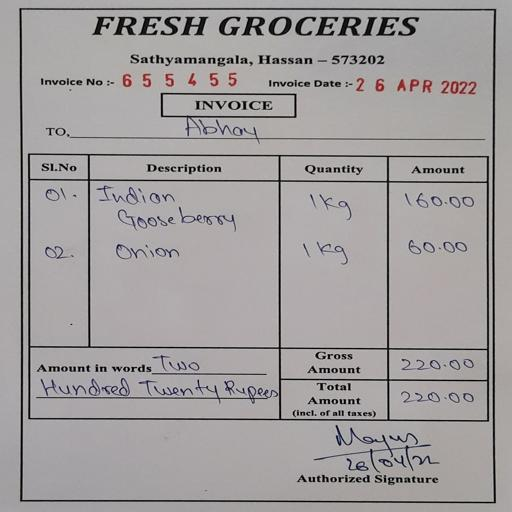 FRESH GROCERIES
Sathyamangala, Hassan – 573202
Invoice No :- 655455 Invoice Date :- 26 APR 2022
INVOICE
TO, Abhay
Sl.No Description Quantity Amount
01. Indian Gooseberry 1kg 160.00
02. Onion 1kg 60.00
Amount in words Two Hundred Twenty Rupees
Gross Amount 220.00
Total Amount (incl. of all taxes) 220.00
26/04/22
Authorized Signature